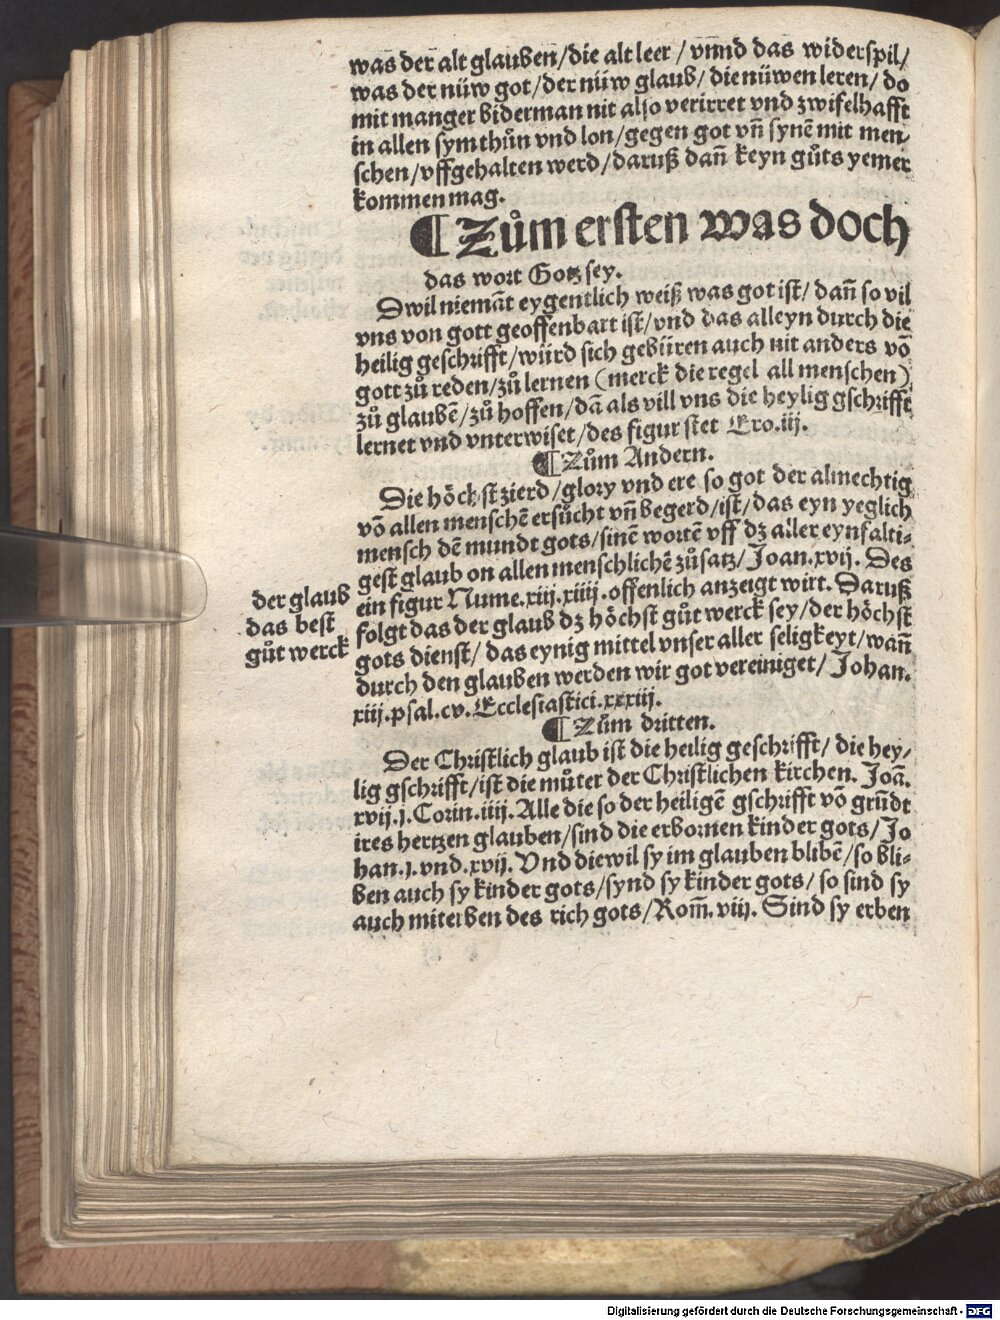 was der alt glauben/die alt leer / vnnd das widerspil/
was der nüw got/der nüw glaub/ die nüwen leren/ do
mit manger biderman nit also verirret vnd zwifelhafft
in allen sym thůn vnd lon/gegen got vñ synē mit men/
schen/vffgehalten werd/daruß dañ keyn gůts yemer
kommen mag.
¶ Zům ersten was doch
das wort Gotz sey.
Dwil niemāt eygentlich weiß was got ist/ dañ so vil
vns von gott geoffenbart ist/vnd das alleyn durch die
heilig geschrifft/würd sich gebüren auch nit anders vō
gott zů reden/zů lernen (merck die regel all menschen)
zů glaubē/zů hoffen/dā als vill vns die heylig gschrifft
lernet vnd vnterwiset/des figur stet Exo.iij.
¶ Zům Andern.
Die höchst zierd/glory vnd ere so got der almechtig
vō allen menschē ersůcht vñ begerd/ist/das eyn yeglich
mensch dē mundt gots/sinē wortē vff dz aller eynfalti-
gest glaub on allen menschlichē zůsatz/Joan.xvij. Des
ein figur Nume.xiij.xiiij.offenlich anzeigt wirt. Daruß
folgt das der glaub dz höchst gůt werck sey/der höchst
gots dienst/das eynig mittel vnser aller seligkeyt/wañ
durch den glauben werden wir got vereiniget/ Johan.
xiij.psal.cv.Ecclesiastici.xxxiij.
der glaub
das best
gůt werck
¶ Zům dritten.
Der Christlich glaub ist die heilig geschrifft/ die hey/
lig gschrifft/ist die můter der Christlichen kirchen. Joā.
xvij.j.Corin.iiij.Alle die so der heiligē gschrifft vō grūdt
ires hertzen glauben/sind die erbornen kinder gots/Jo
han.j.vnd.xvij. Vnd diewil sy im glauben blibē/so bli-
ben auch sy kinder gots/synd sy kinder gots/ so sind sy
auch miterben des rich gots/Rom̄.viij. Sind sy erben
Digitalisierung gefördert durch die Deutsche Forschungsgemeinschaft - DFG